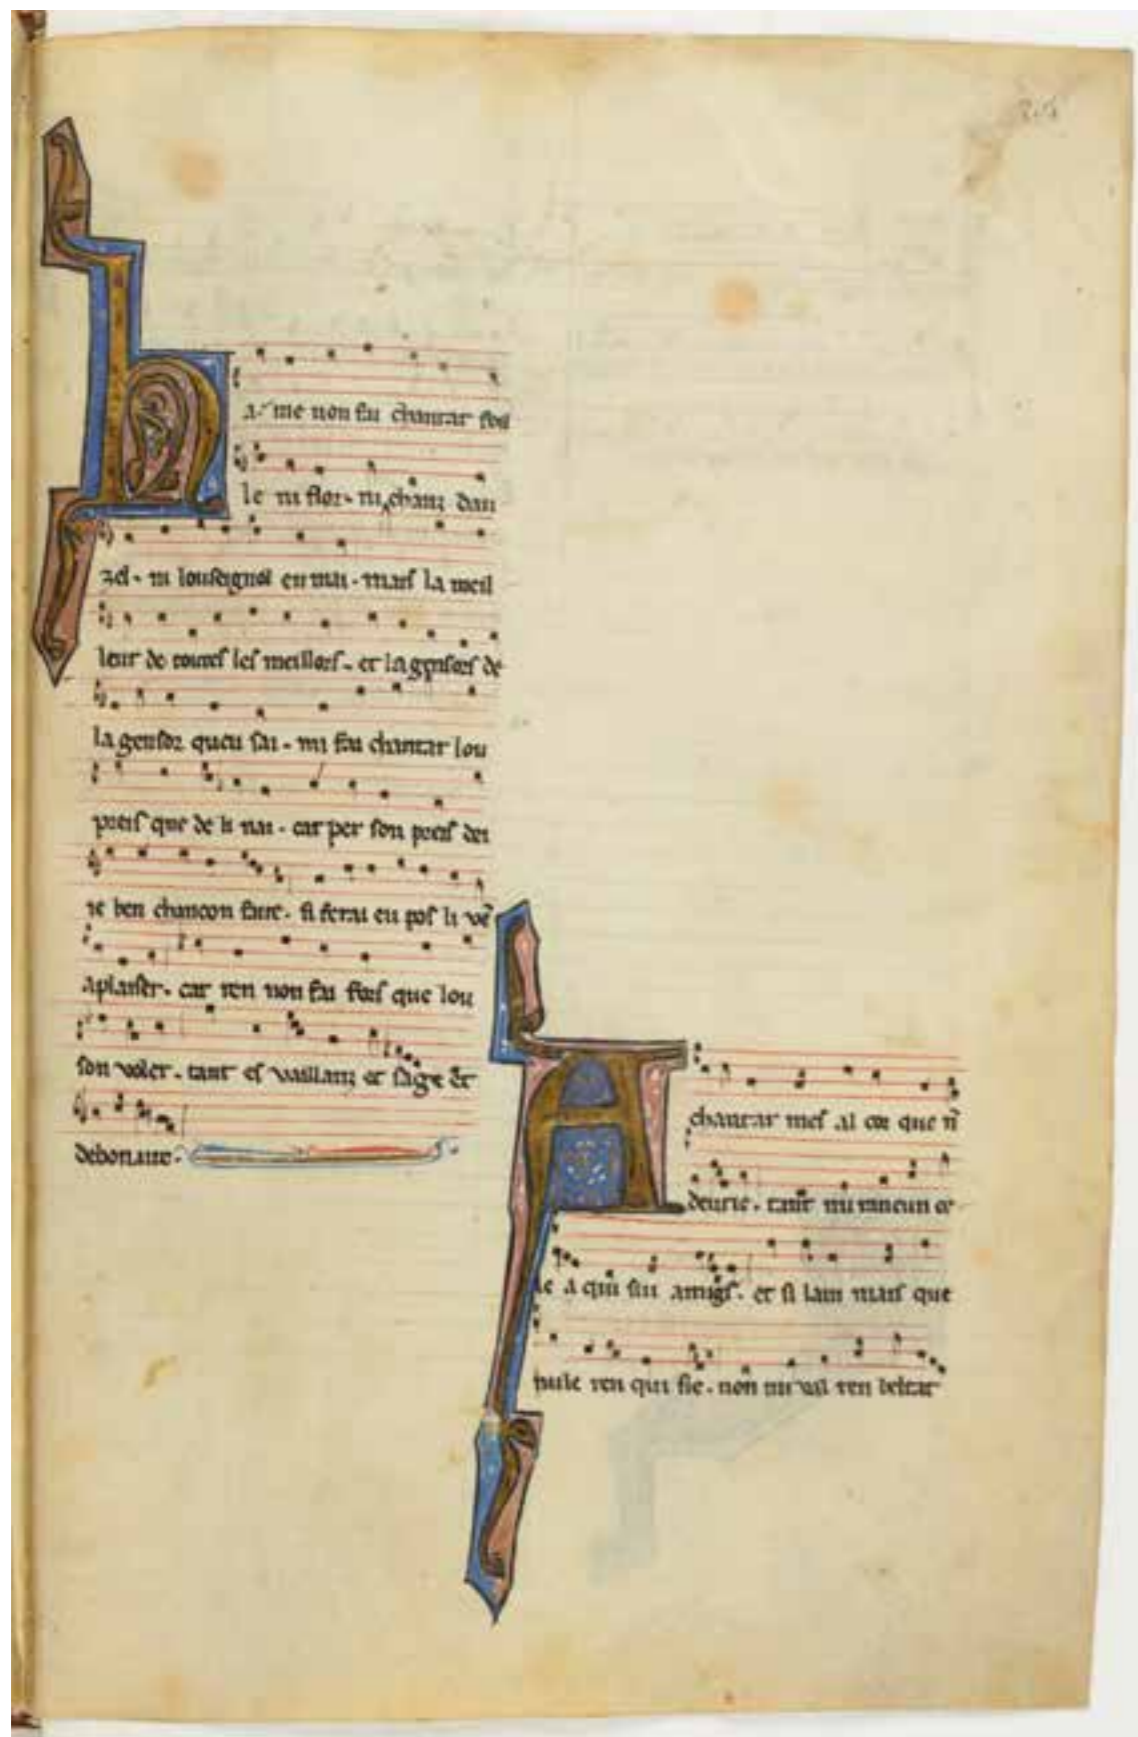 ha me non fai chantar foil
le ni flor. ni chanz dau
zel. ni louseignol en mai. mais la meil
leur de toutes les meillors. et la gensors de
la gensor queu sai. mi fai chantar lou
preis que de li nai. car per son preis dei
ie ben chancon faire. si ferai eu pos li vẽ
a plaiser. car ren non fai fors que lou
son voler. tant es vaillanz et sage et
debonaire.
A chantar mes al cor que ñ
deurie. tant mi rancun ce
le a qui sui amigs. et si lam mais que
nule ren qui sie. non mi val ren beltat